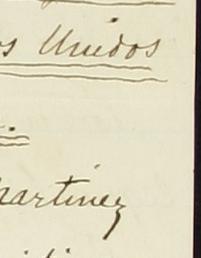 os Unidos
artinez